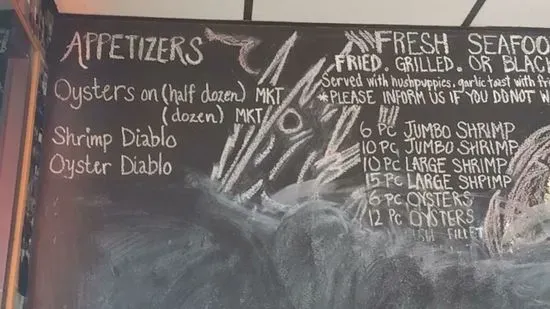 APPETIZERS
Oysters on (half dozen) MKT
(dozen) MKT
Shrimp Diablo
Oyster Diablo
FRESH SEAFOO
FRIED, GRILLED, OR BLAC
Served with hushpuppies, garlic toast with fr
*PLEASE INFORM US IF YOU DO NOT W
6 PC JUMBO SHRIMP
10 PC JUMBO SHRIMP
10 PC LARGE SHRIMP
15 PC LARGE SHRIMP
6 PC OYSTERS
12 PC OYSTERS
FISH FILLET